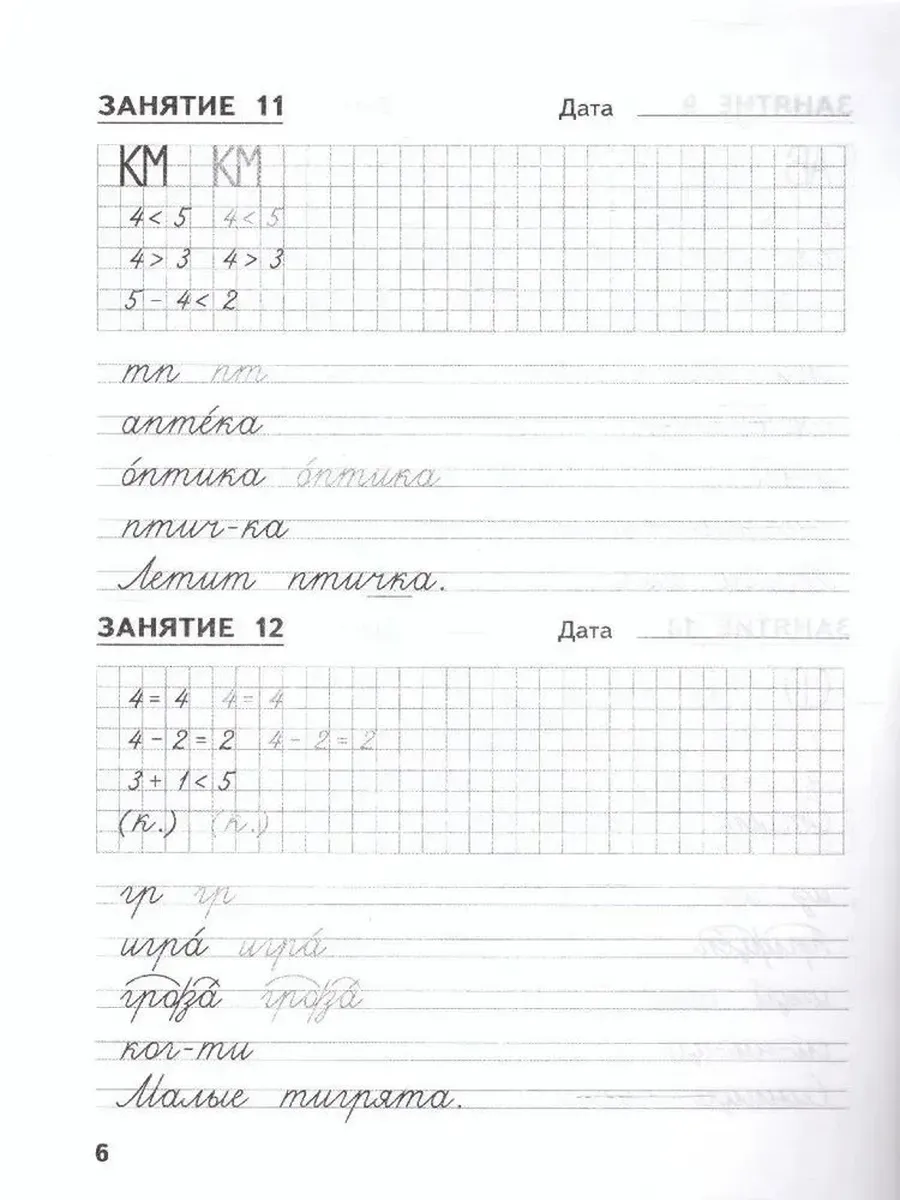 ЗАНЯТИЕ 11 Дата
КМ КМ
4 < 5 4 < 5
4 > 3 4 > 3
5 - 4 < 2
тп пт
апте́ка
о́птика о́птика
птич-ка
Летит птичка.
ЗАНЯТИЕ 12 Дата
4 = 4 4 = 4
4 - 2 = 2 4 - 2 = 2
3 + 1 < 5
(к.) (к.)
гр гр
игра́ игра́
гро/за́ гро/за́
ког-ти
Малые тигрята.
6